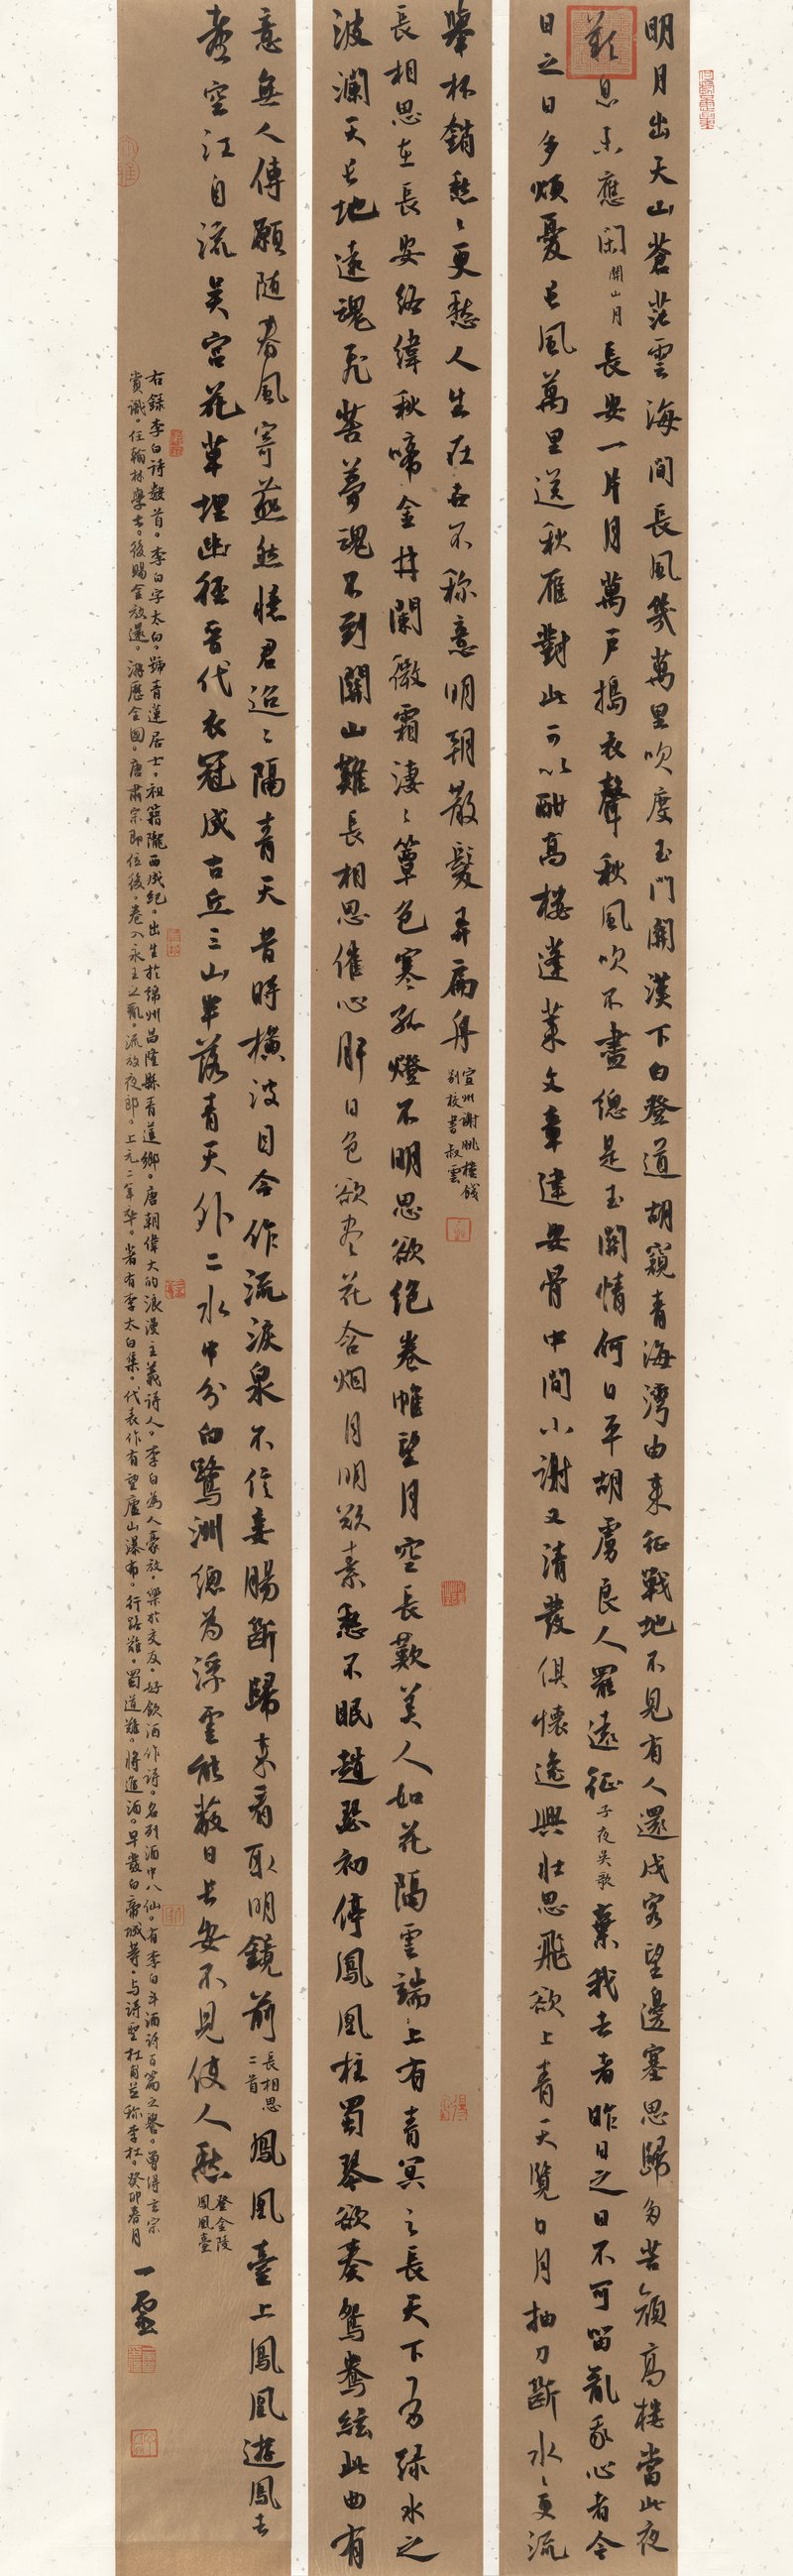 明月出天山蒼茫雲海間長風幾萬里吹度玉門關漢下白登道胡窺青海灣由來征戰地不見有人還戍客望邊塞思歸多苦顏高樓當此夜
歎息未應閑關山月長安一片月萬戶搗衣聲秋風吹不盡總是玉關情何日平胡虜良人罷遠征子夜吳歌棄我去者昨日之日不可留亂我心者今
日之日多煩憂長風萬里送秋雁對此可以酣高樓蓬萊文章建安骨中間小謝又清發俱懷逸興壯思飛欲上青天覽日月抽刀斷水〻更流
舉杯銷愁〻更愁人生在世不稱意明朝散髮弄扁舟宣州謝脁樓餞別校書叔雲
長相思在長安絡緯秋啼金井闌微霜淒〻簟色寒孤燈不明思欲絕卷帷望月空長歎美人如花隔雲端上有青冥之長天下有綠水之
波瀾天長地遠魂飛苦夢魂不到關山難長相思催心肝日色欲盡花含烟月明欲素愁不眠趙瑟初停鳳凰柱蜀琴欲奏鴛鴦絃此曲有
意無人傳願隨春風寄燕然憶君迢〻隔青天昔時橫波目今作流淚泉不信妾腸斷歸來看取明鏡前長相思二首鳳凰臺上鳳凰遊鳳去
臺空江自流吳宮花草埋幽徑晉代衣冠成古丘三山半落青天外二水中分白鷺洲總為浮雲能蔽日長安不見使人愁登金陵鳳凰臺
右錄李白詩數首。李白字太白。號青蓮居士。祖籍隴西成紀。出生於綿州昌隆縣青蓮鄉。唐朝偉大的浪漫主義詩人。李白為人豪放。樂於交友。好飲酒作詩。名列酒中八仙。有李白斗酒詩百篇之譽。曾得玄宗
賞識。任翰林學士。後賜金放還。游歷全國。唐肅宗即位後。卷入永王之亂。流放夜郎。上元二年卒。著有李太白集。代表作有望廬山瀑布。行路難。蜀道難。將進酒。早發白帝城等。与詩聖杜甫並称李杜。癸卯春月一靈